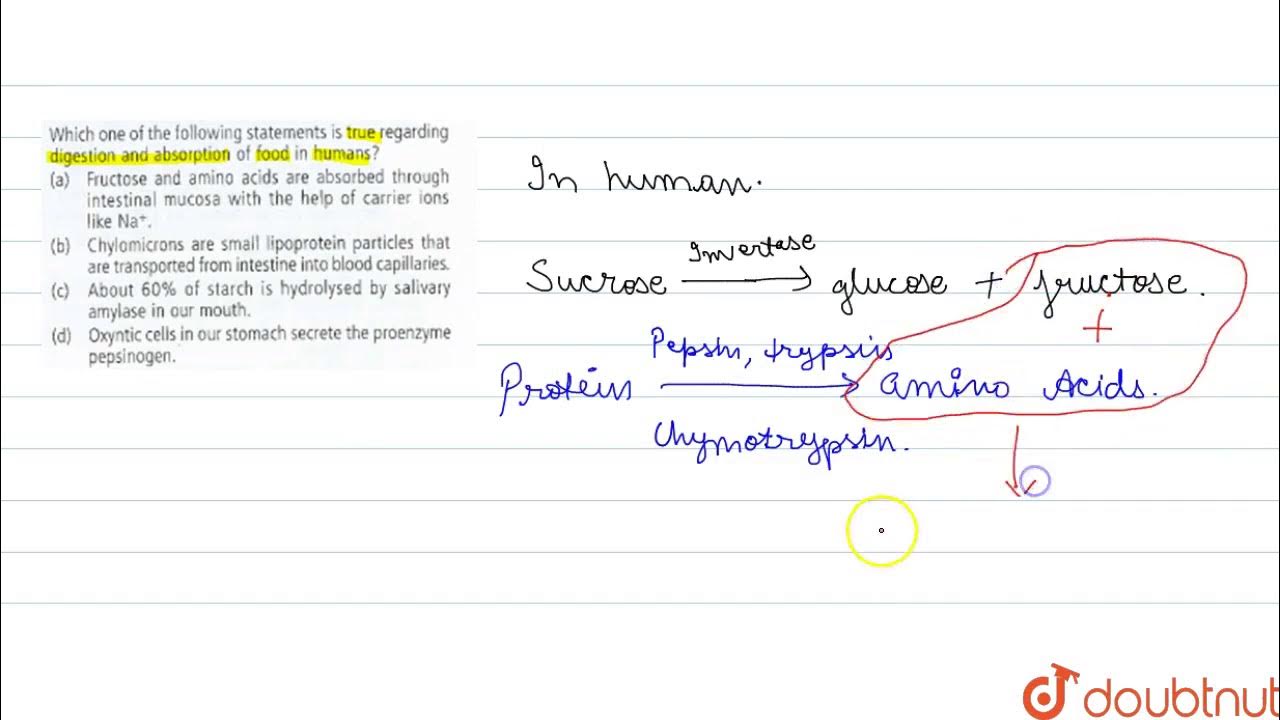 Which one of the following statements is true regarding
digestion and absorption of food in humans?
(a) Fructose and amino acids are absorbed through
intestinal mucosa with the help of carrier ions
like Na⁺.
(b) Chylomicrons are small lipoprotein particles that
are transported from intestine into blood capillaries.
(c) About 60% of starch is hydrolysed by salivary
amylase in our mouth.
(d) Oxyntic cells in our stomach secrete the proenzyme
pepsinogen.
In human.
Invertase
Sucrose → glucose + fructose.
+
Pepsin, trypsin
Protein → amino Acids.
Chymotrypsin.
doubtnut